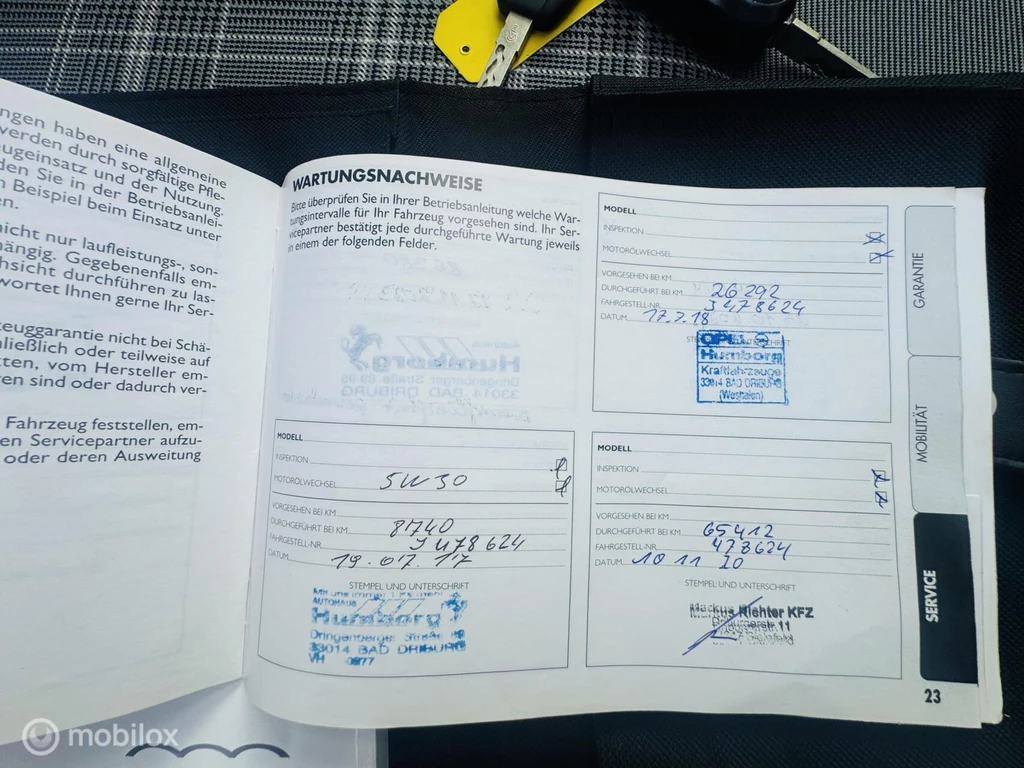 ngen haben eine allgemeine
werden durch sorgfältige Pfle-
eugeinsatz und der Nutzung.
den Sie in der Betriebsanlei-
n Beispiel beim Einsatz unter
en.
nicht nur laufleistungs-, son-
hängig. Gegebenenfalls em-
hsicht durchführen zu las-
wortet Ihnen gerne Ihr Ser-
zeuggarantie nicht bei Schä-
hließlich oder teilweise auf
tten, vom Hersteller em-
ren sind oder dadurch ver-
Fahrzeug feststellen, em-
en Servicepartner aufzu-
oder deren Ausweitung
WARTUNGSNACHWEISE
Bitte überprüfen Sie in Ihrer Betriebsanleitung welche War-
tungsintervalle für Ihr Fahrzeug vorgesehen sind. Ihr Ser-
vicepartner bestätigt jede durchgeführte Wartung jeweils
in einem der folgenden Felder.
MODELL
INSPEKTION
MOTORÖLWECHSEL
VORGESEHEN BEI KM
DURCHGEFÜHRT BEI KM 26 292
FAHRGESTELL-NR. J478624
DATUM 17.7.18
OPEL
Humborg
Kraftfahrzeuge
33014 BAD DRIBURG
(Westfalen)
MODELL
INSPEKTION
MOTORÖLWECHSEL 5W30
VORGESEHEN BEI KM
DURCHGEFÜHRT BEI KM 8740
FAHRGESTELL-NR. J478624
DATUM 19.07.17
STEMPEL UND UNTERSCHRIFT
AUTOHAUS
Humborg
Dringenberger Straße
33014 BAD DRIBURG
VH 0877
MODELL
INSPEKTION
MOTORÖLWECHSEL
VORGESEHEN BEI KM
DURCHGEFÜHRT BEI KM 65412
FAHRGESTELL-NR. 478624
DATUM 10 11 20
STEMPEL UND UNTERSCHRIFT
Markus Richter KFZ
GARANTIE
MOBILITÄT
SERVICE
23
mobilox